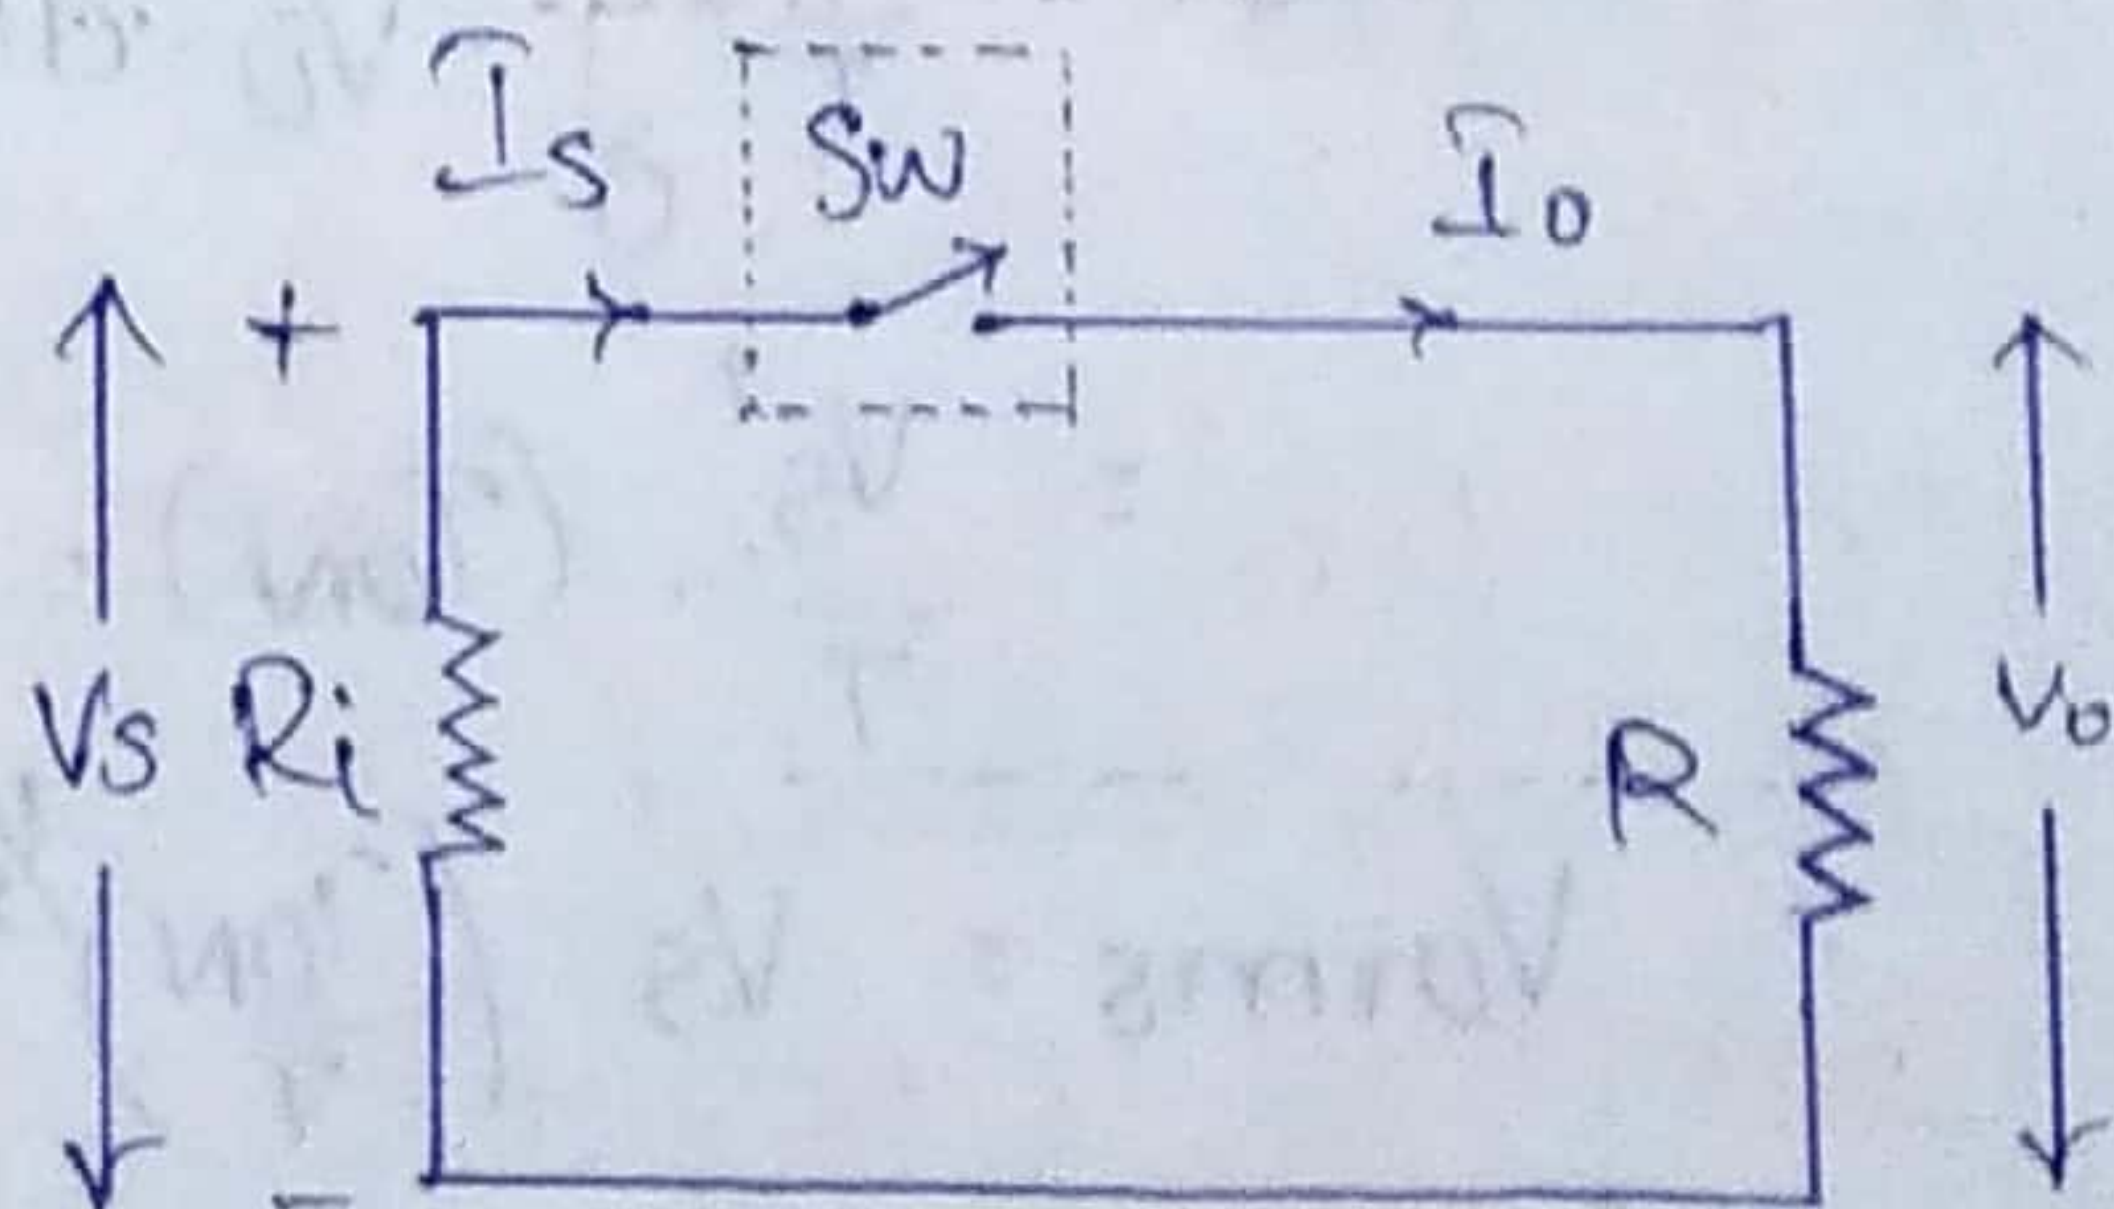 Is
Sw
Io
+
Vs
Ri
R
Vo
-